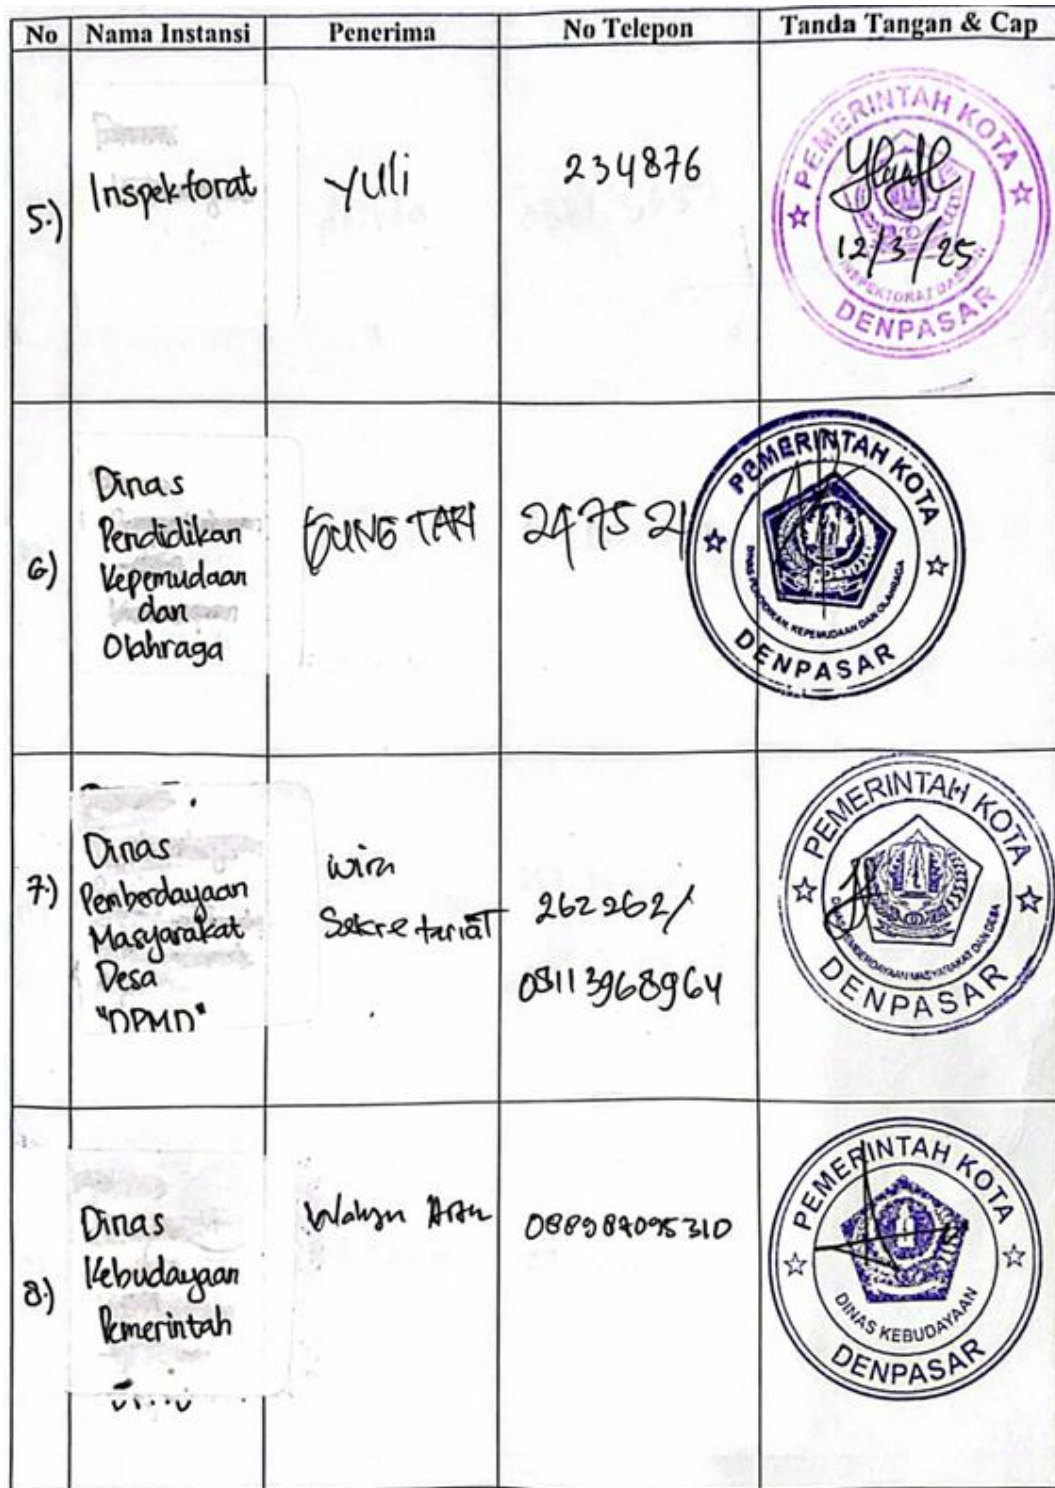 No Nama Instansi Penerima No Telepon Tanda Tangan & Cap
5.) Inspektorat Yuli 234876
PEMERINTAH KOTA
12/3/25
INSPEKTORAT DAERAH
DENPASAR
6)
Dinas
Pendidikan
Kepemudaan
dan
Olahraga
GUNG TARI 247521
PEMERINTAH KOTA
DINAS PENDIDIKAN, KEPEMUDAAN DAN OLAHRAGA
DENPASAR
7.)
Dinas
Pemberdayaan
Masyarakat
Desa
"DPMD"
Wira
Sekretariat
262262/
08113968964
PEMERINTAH KOTA
DINAS PEMBERDAYAAN MASYARAKAT DAN DESA
DENPASAR
8.)
Dinas
Kebudayaan
Pemerintah
PEMERINTAH KOTA
DINAS KEBUDAYAAN
DENPASAR